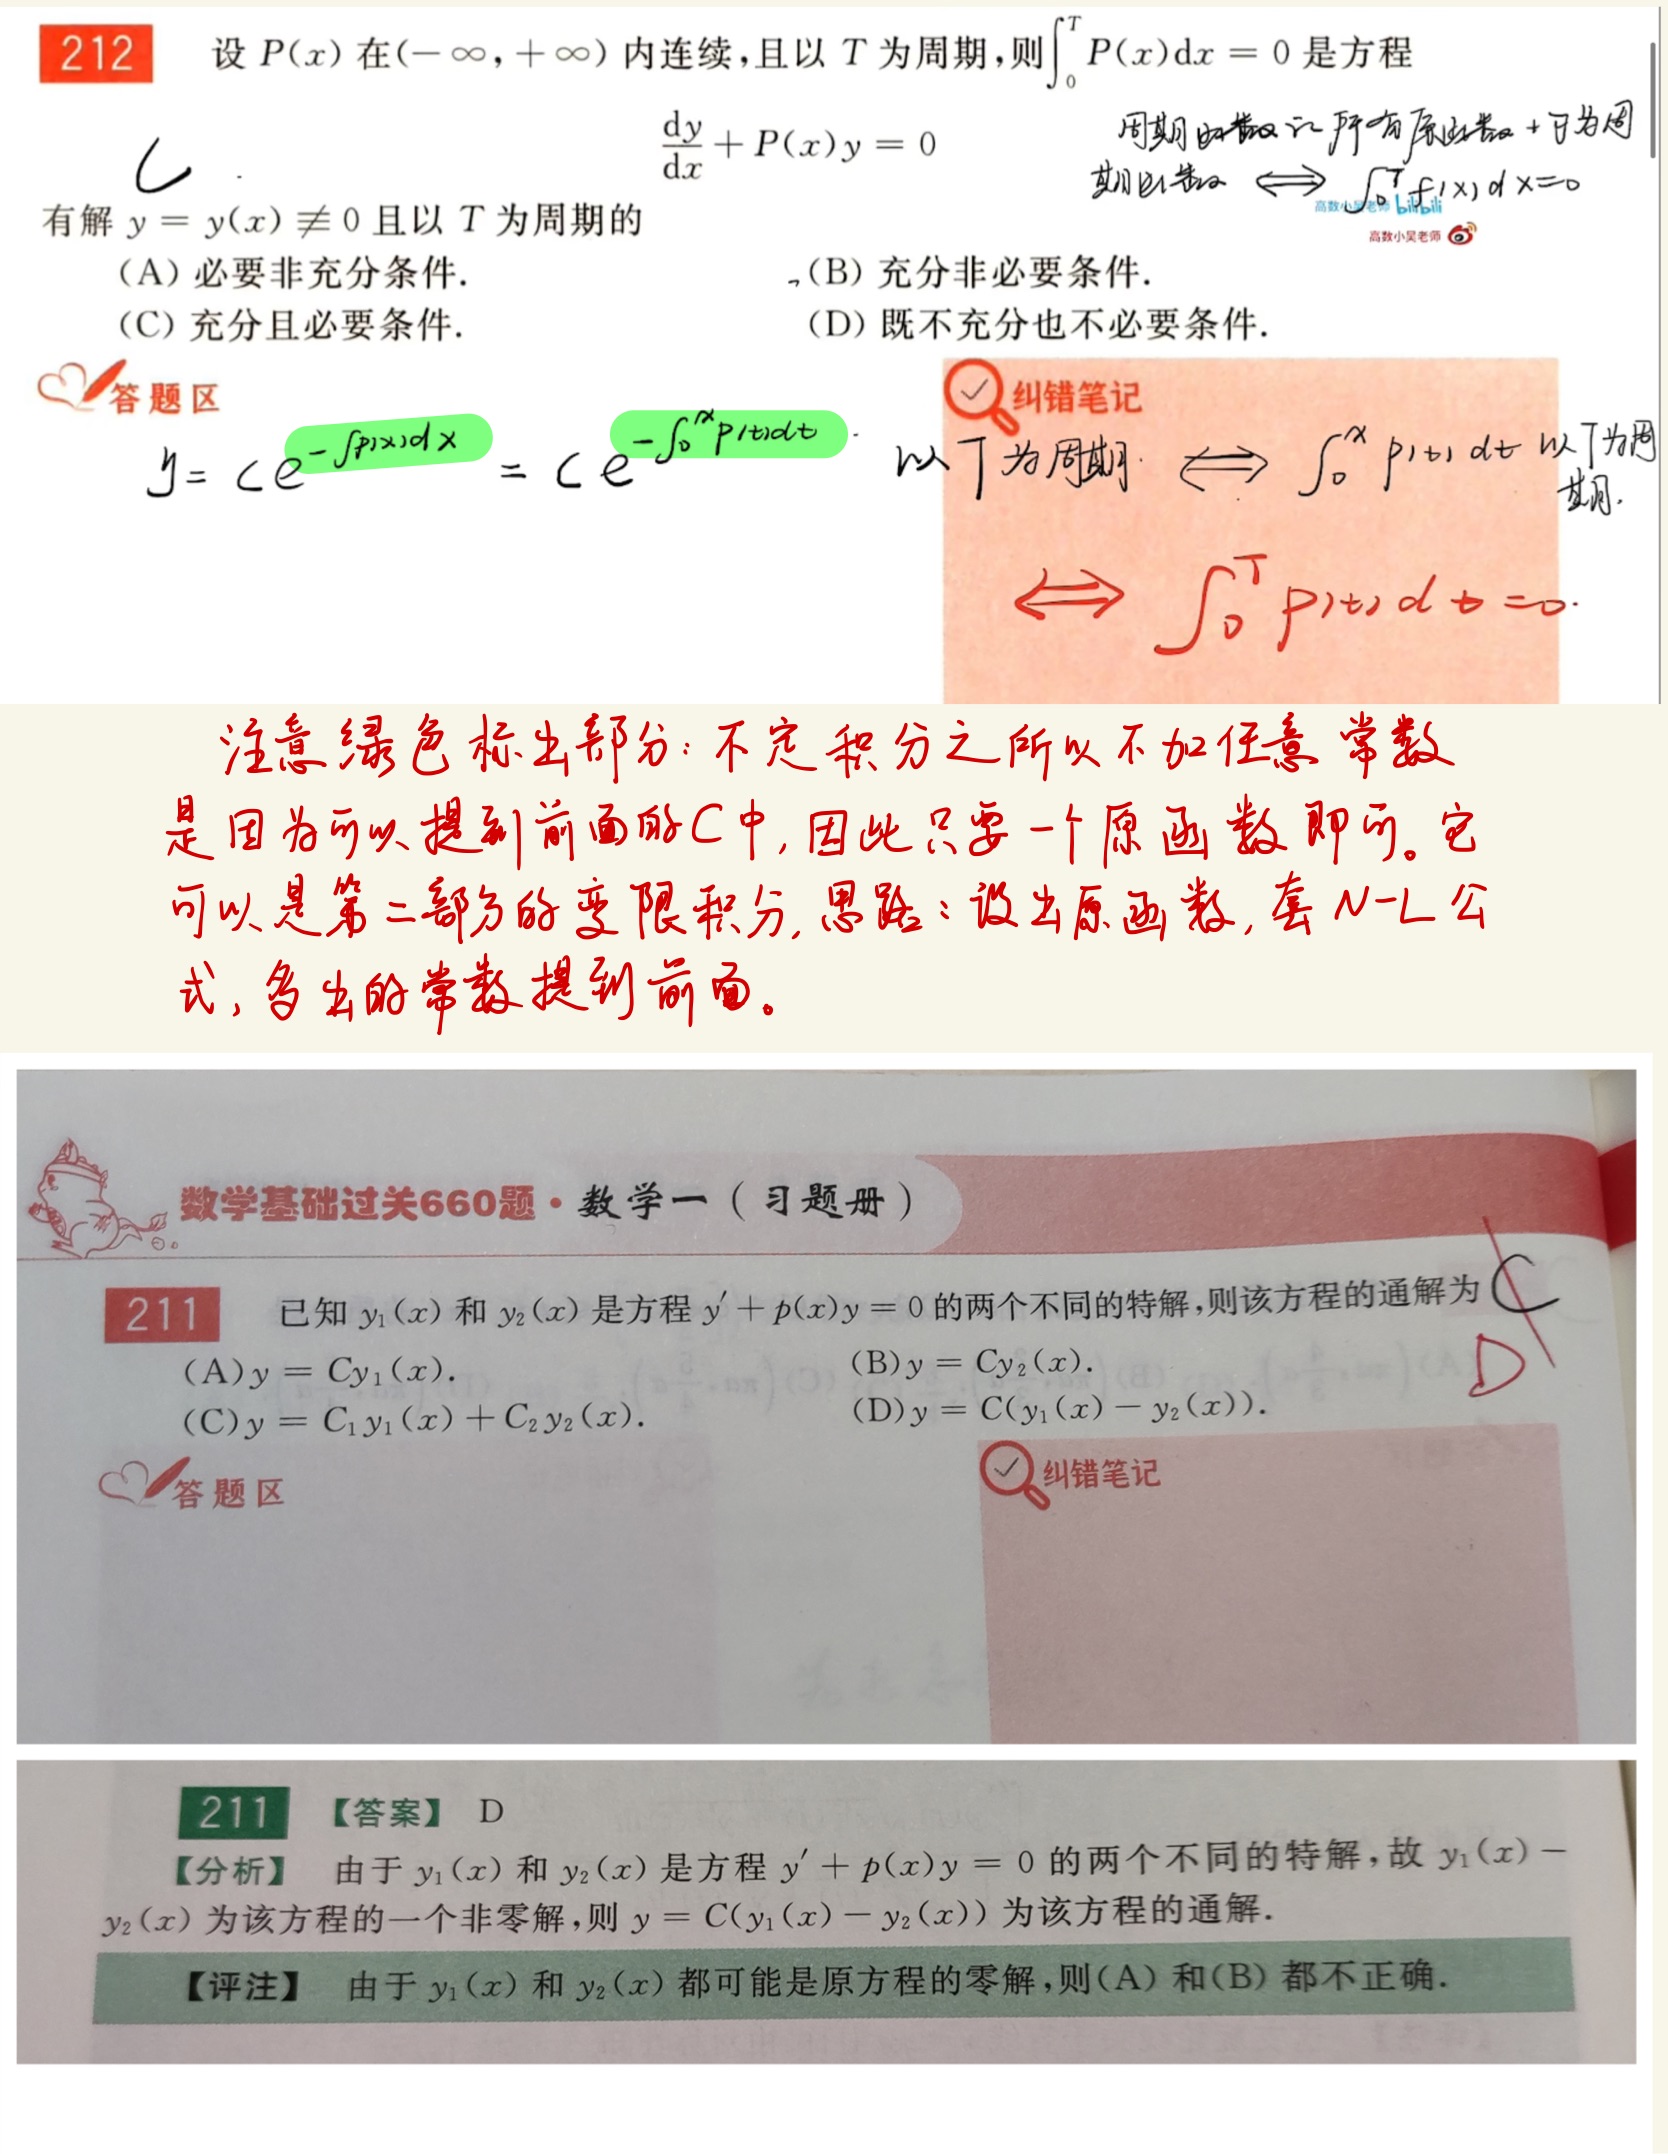 212 设 P(x) 在(－∞, ＋∞) 内连续,且以 T 为周期,则∫₀ᵀ P(x)dx = 0 是方程
dy/dx + P(x)y = 0
周期函数的所有原函数+可为周
期函数 ⟺ ∫₀ᵀ f(x)dx=0
高数小吴老师 bilibili
高数小吴老师
C
有解 y = y(x) ≢ 0 且以 T 为周期的
(A) 必要非充分条件.
(B) 充分非必要条件.
(C) 充分且必要条件.
(D) 既不充分也不必要条件.
答题区
纠错笔记
y = ce^(-∫p(x)dx) = ce^(-∫₀ˣp(t)dt) . 以T为周期. ⟺ ∫₀ˣ p(t)dt 以T为周
期.
⟺ ∫₀ᵀ p(t)dt=0.
注意绿色标出部分:不定积分之所以不加任意常数
是因为可以提到前面的C中,因此只要一个原函数即可。它
可以是第二部分的变限积分,思路:设出原函数,套N-L公
式,多出的常数提到前面。
数学基础过关660题·数学一(习题册)
211 已知 y₁(x) 和 y₂(x) 是方程 y′ + p(x)y = 0 的两个不同的特解,则该方程的通解为
C
D
(A) y = Cy₁(x).
(B) y = Cy₂(x).
(C) y = C₁y₁(x) + C₂y₂(x).
(D) y = C(y₁(x) − y₂(x)).
答题区
纠错笔记
211 【答案】 D
【分析】 由于 y₁(x) 和 y₂(x) 是方程 y′ + p(x)y = 0 的两个不同的特解,故 y₁(x) −
y₂(x) 为该方程的一个非零解,则 y = C(y₁(x) − y₂(x)) 为该方程的通解.
【评注】 由于 y₁(x) 和 y₂(x) 都可能是原方程的零解,则(A) 和(B) 都不正确.